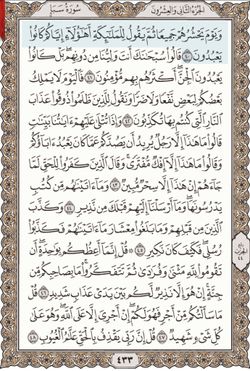 الجُزْءُ الثَّانِي وَالعِشْرُونَ
سُورَةُ سَبَإٍ
وَيَوْمَ يَحْشُرُهُمْ جَمِيعًا ثُمَّ يَقُولُ لِلْمَلَٰٓئِكَةِ أَهَٰٓؤُلَآءِ إِيَّاكُمْ كَانُوا۟
يَعْبُدُونَ ٤٠ قَالُوا۟ سُبْحَٰنَكَ أَنتَ وَلِيُّنَا مِن دُونِهِم بَلْ كَانُوا۟
يَعْبُدُونَ ٱلْجِنَّ أَكْثَرُهُم بِهِم مُّؤْمِنُونَ ٤١ فَٱلْيَوْمَ لَا يَمْلِكُ
بَعْضُكُمْ لِبَعْضٍ نَّفْعًا وَلَا ضَرًّا وَنَقُولُ لِلَّذِينَ ظَلَمُوا۟ ذُوقُوا۟ عَذَابَ
ٱلنَّارِ ٱلَّتِى كُنتُم بِهَا تُكَذِّبُونَ ٤٢ وَإِذَا تُتْلَىٰ عَلَيْهِمْ ءَايَٰتُنَا بَيِّنَٰتٍ
قَالُوا۟ مَا هَٰذَآ إِلَّا رَجُلٌ يُرِيدُ أَن يَصُدَّكُمْ عَمَّا كَانَ يَعْبُدُ ءَابَآؤُكُمْ
وَقَالُوا۟ مَا هَٰذَآ إِلَّآ إِفْكٌ مُّفْتَرًى وَقَالَ ٱلَّذِينَ كَفَرُوا۟ لِلْحَقِّ لَمَّا
جَآءَهُمْ إِنْ هَٰذَآ إِلَّا سِحْرٌ مُّبِينٌ ٤٣ وَمَآ ءَاتَيْنَٰهُم مِّن كُتُبٍ
يَدْرُسُونَهَا وَمَآ أَرْسَلْنَآ إِلَيْهِمْ قَبْلَكَ مِن نَّذِيرٍ ٤٤ وَكَذَّبَ
ٱلَّذِينَ مِن قَبْلِهِمْ وَمَا بَلَغُوا۟ مِعْشَارَ مَآ ءَاتَيْنَٰهُمْ فَكَذَّبُوا۟
رُسُلِى فَكَيْفَ كَانَ نَكِيرِ ٤٥ قُلْ إِنَّمَآ أَعِظُكُم بِوَٰحِدَةٍ أَن
تَقُومُوا۟ لِلَّهِ مَثْنَىٰ وَفُرَٰدَىٰ ثُمَّ تَتَفَكَّرُوا۟ مَا بِصَاحِبِكُم مِّن
جِنَّةٍ إِنْ هُوَ إِلَّا نَذِيرٌ لَّكُم بَيْنَ يَدَىْ عَذَابٍ شَدِيدٍ ٤٦ قُلْ
مَا سَأَلْتُكُم مِّنْ أَجْرٍ فَهُوَ لَكُمْ إِنْ أَجْرِىَ إِلَّا عَلَى ٱللَّهِ وَهُوَ عَلَىٰ
كُلِّ شَىْءٍ شَهِيدٌ ٤٧ قُلْ إِنَّ رَبِّى يَقْذِفُ بِٱلْحَقِّ عَلَّٰمُ ٱلْغُيُوبِ ٤٨
٤٣٣